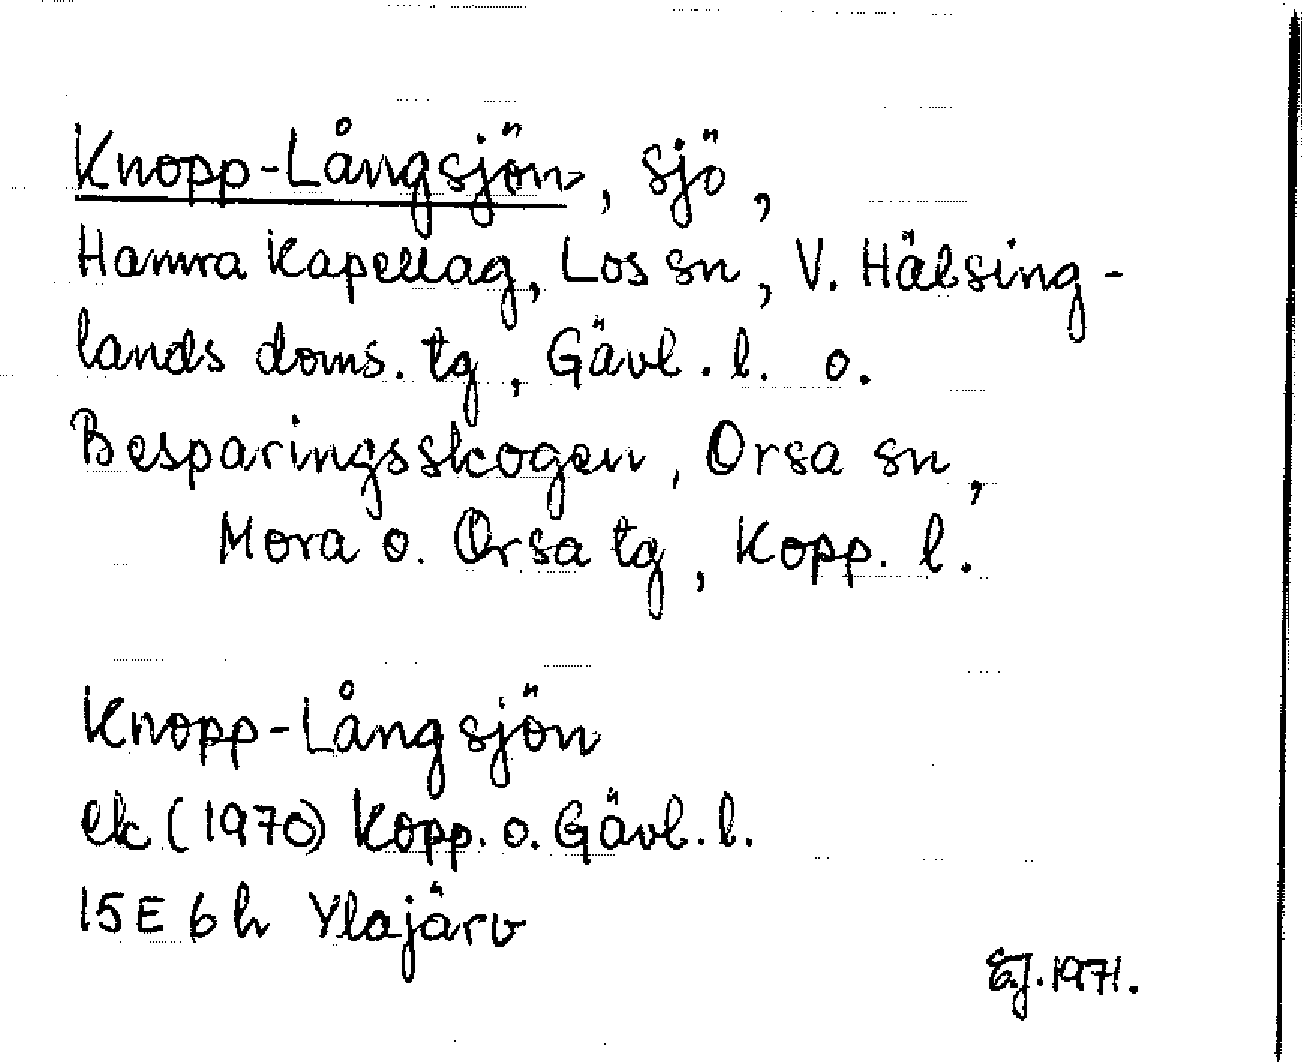 Knopp-Långsjön, sjö,
Hamra Kapellag, Los sn, V. Hälsing-
lands doms. tg, Gävl. l. o.
Besparingsskogen, Orsa sn,
Mora o. Orsa tg, Kopp. l.
Knopp-Långsjön
ek (1970) Kopp. o. Gävl. l.
15E 6h Ylajärv
EJ. 1971.